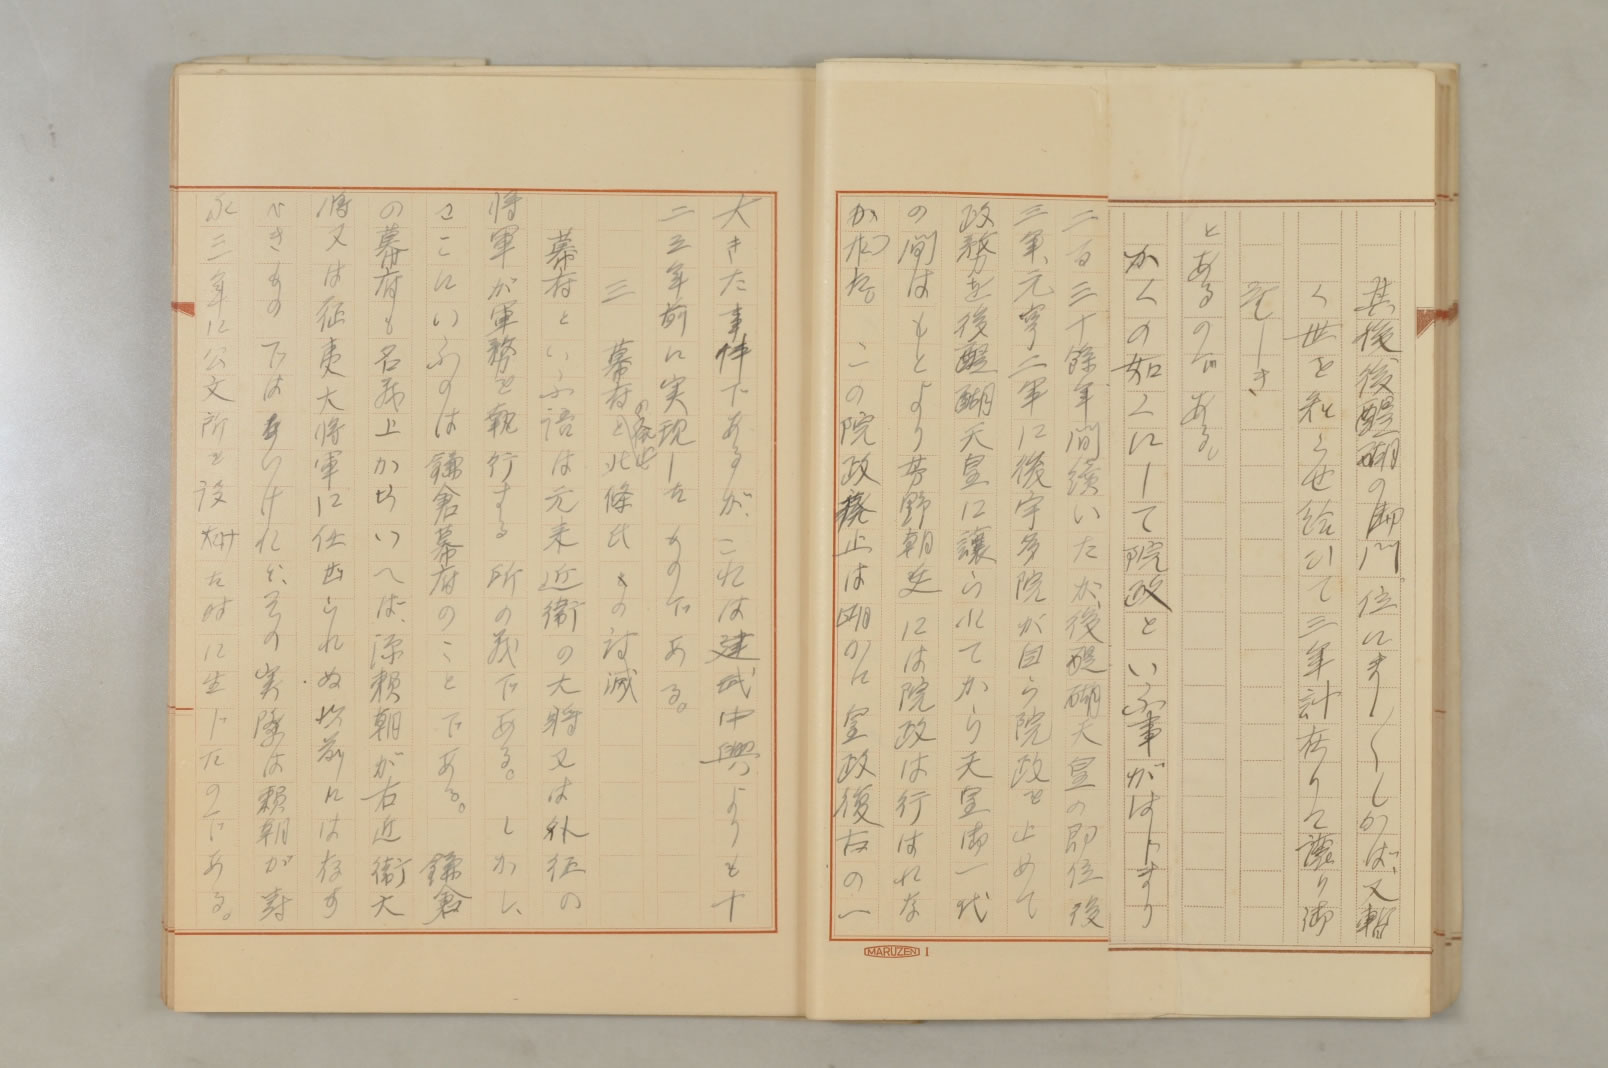 其後後醍醐の御門位にまし〱しかば、又暫
く世を知らせ給ひて三年計在りて譲り御
座しき
とあるのである。
かくの如くにして院政といふ事がはじまり
二百三十餘年間續いたが、後醍醐天皇の即位後
三年、元亨二年に後宇多院が自ら院政を止めて
政務を後醍醐天皇に讓られてから天皇御一代
の間はもとより吉野朝廷には院政は行はれな
かつた。この院政廃止は明かに皇政復古の一
MARUZEN 1
大きた事件であるが、これは建武中興よりも十
二三年前に実現したものである。
三 幕府と北條氏の討滅
幕府といふ語は元来近衛の大将又は外征の
将軍が軍務を執行する所の義である。しかし、
ここにいふのは鎌倉幕府のことである。鎌倉
の幕府も名義上からいへば、源賴朝が右近衛大
将又は征夷大将軍に任ぜられぬ以前には存す
べきものではないけれど、その実際は賴朝が壽
永三年に公文所を設けた時に生じたのである。